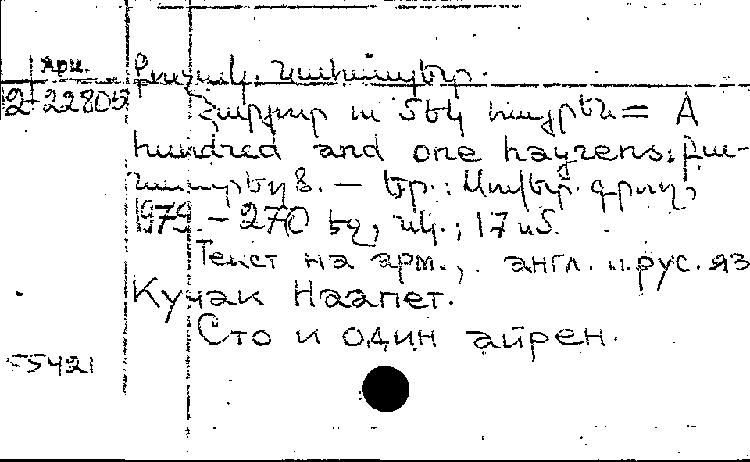 арм.
Քուչակ, Նահապետ.
2-22805
Հարյուր ու մեկ հայրեն = A
hundred and one hayrens: Բա-
նաստեղծ. — Եր.: Սովետ. գրող,
1979. – 270 էջ, նկ.; 17 սմ.
Текст на арм., англ. и рус. яз
Кучак Наапет.
Сто и один айрен.
55421